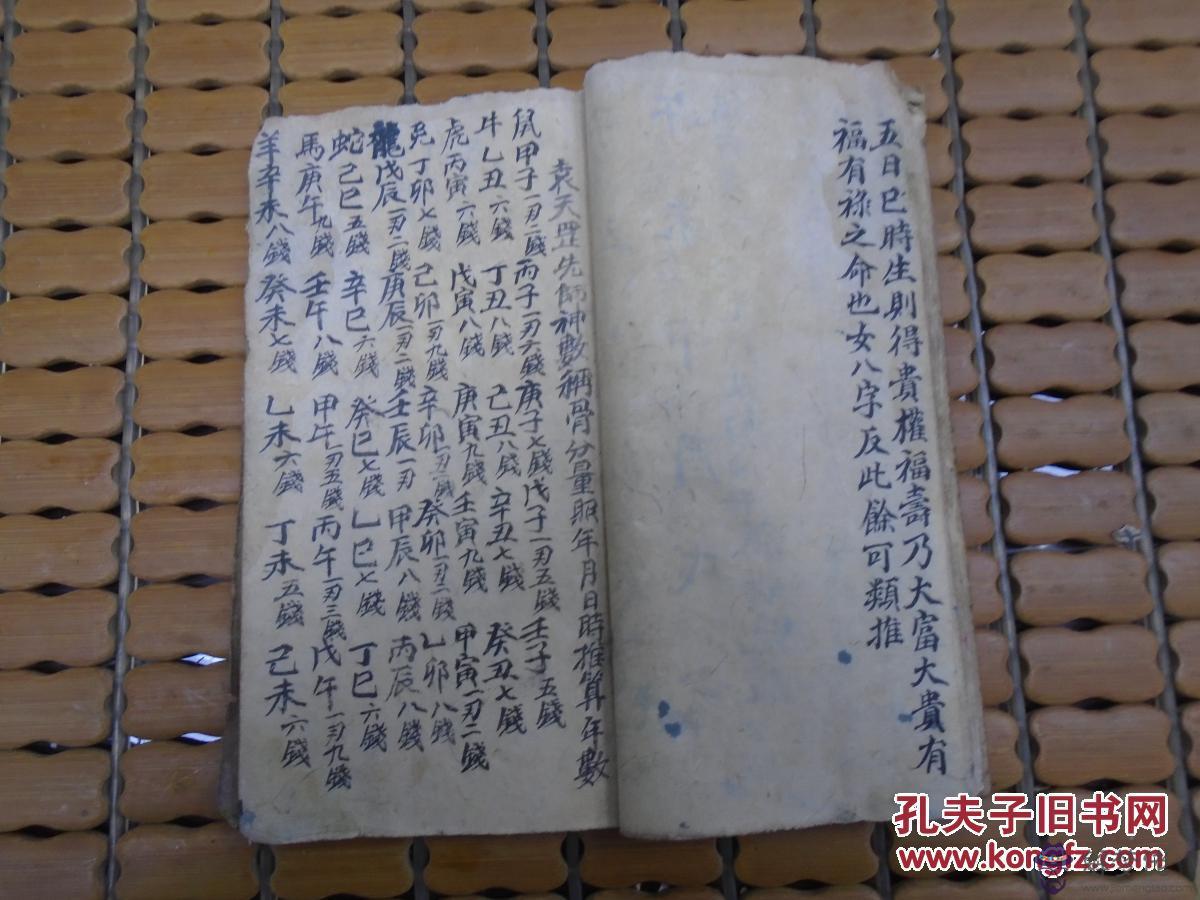 五日巳時生則得貴權福壽乃大富大貴有
福有祿之命也女八字反此餘可類推
袁天罡先師神數稱骨分量照年月日時推算年數
鼠甲子一刄二錢丙子一刄六錢庚子七錢戊子一刄五錢壬子五錢
牛乙丑六錢丁丑八錢己丑八錢辛丑七錢癸丑七錢
虎丙寅六錢戊寅八錢庚寅九錢壬寅九錢甲寅一刄二錢
兎丁卯七錢己卯一刄九錢辛卯一刄二錢癸卯一刄二錢乙卯八錢
龍戊辰一刄二錢庚辰一刄二錢壬辰一刄甲辰八錢丙辰八錢
蛇己巳五錢辛巳六錢癸巳七錢乙巳七錢丁巳六錢
馬庚午九錢壬午八錢甲午一刄五錢丙午一刄三錢戊午一刄九錢
羊辛未八錢癸未七錢乙未六錢丁未五錢己未六錢
孔夫子旧书网
www.kongfz.com